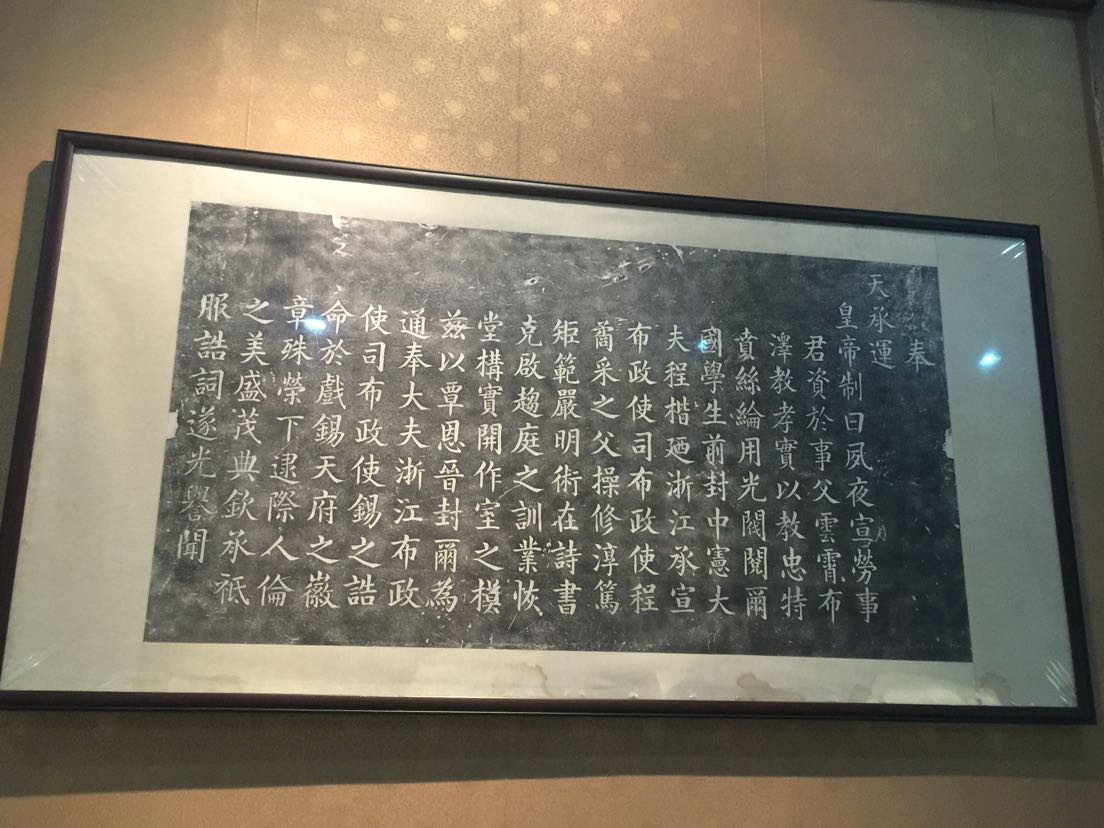 奉
天承運
皇帝制曰夙夜宣勞事
君資於事父雲霄布
澤教孝實以教忠特
賁絲綸用光閥閱爾
國學生前封中憲大
夫程楷廼浙江承宣
布政使司布政使程
矞采之父操修淳篤
矩範嚴明術在詩書
克啟趨庭之訓業恢
堂構實開作室之模
茲以覃恩晉封爾為
通奉大夫浙江布政
使司布政使錫之誥
命於戲錫天府之徽
章殊榮下逮際人倫
之美盛茂典欽承祗
服誥詞遂光譽聞